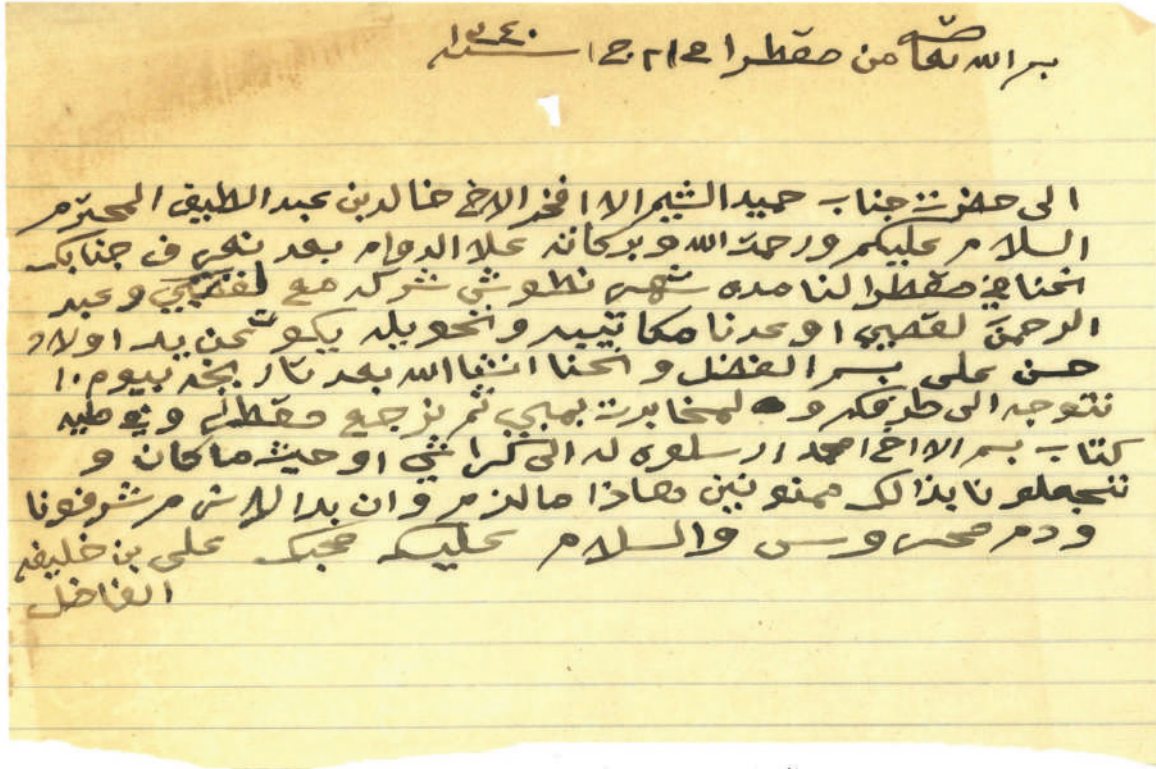 بسم الله تعالى من مقطرا في ٢١ ج ١ سنة ١٣٤٠
الى حضرت جناب حميد الشيم الاافخر الاخ خالد بن عبد الطيف المحترم
السلام عليكم ورحمة الله وبركاته علا الدوام بعد نعرف جنابك
احنا في مقطرا لنا مده شهر نطوش شركه مع لقصيبي وعبد
الرحمن لقصيبي او عدنا مكاتيبه وتحويله يكون عن يد اولاد
حسن علي بسر الفضل و احنا انشا الله بعد بيوم ١٠
نتوجه الى طرفكم و لمخابرت بمبي ثم نرجع مقطرا
كتاب بسم الااخ احمد ارسلوه له الى كراشي او حيث ما كان و
تجعلونا بذالك ممنونين هاذا ما لزم وان بدا لازم شرفونا
ودم محروس والسلام عليك محبك علي بن خليفه
الفاضل